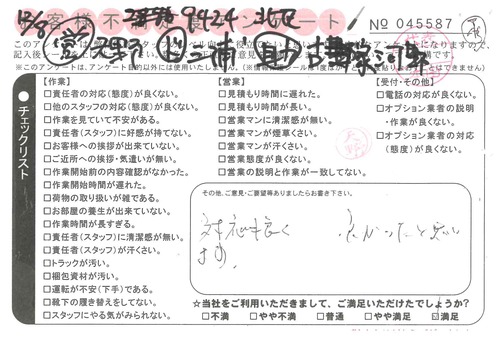 お客様不満足アンケート
№ 045587
※このアンケートは、アンケート目的以外には使用いたしません。
チェックリスト
【作業】
□責任者の対応(態度)が良くない。
□他のスタッフの対応(態度)が良くない。
□作業を見ていて不安がある。
□責任者(スタッフ)に好感が持てない。
□お客様への挨拶が出来ていない。
□ご近所への挨拶・気遣いが無い。
□作業開始前の内容確認がなかった。
□作業開始時間が遅れた。
□荷物の取り扱いが雑である。
□お部屋の養生が出来ていない。
□作業時間が長すぎる。
□責任者(スタッフ)に清潔感が無い。
□責任者(スタッフ)が汗くさい。
□トラックが汚い。
□梱包資材が汚い。
□運転が不安(下手)である。
□靴下の履き替えをしてない。
□スタッフにやる気がみられない。
【営業】
□見積もり時間に遅れた。
□見積もり時間が長い。
□営業マンに清潔感が無い。
□営業マンが煙草くさい。
□営業マンが汗くさい。
□営業態度が良くない。
□営業の説明と作業が一致してない。
【受付・その他】
□電話の対応が良くない。
□オプション業者の説明
・作業が良くない。
□オプション業者の対応
(態度)が良くない。
その他、ご意見・ご要望等ありましたらお書き下さい。
対応も良く 良かったと思い
ます。
☆当社をご利用いただきまして、ご満足いただけたでしょうか?
□不満 □やや不満 □普通 □やや満足 ☑満足